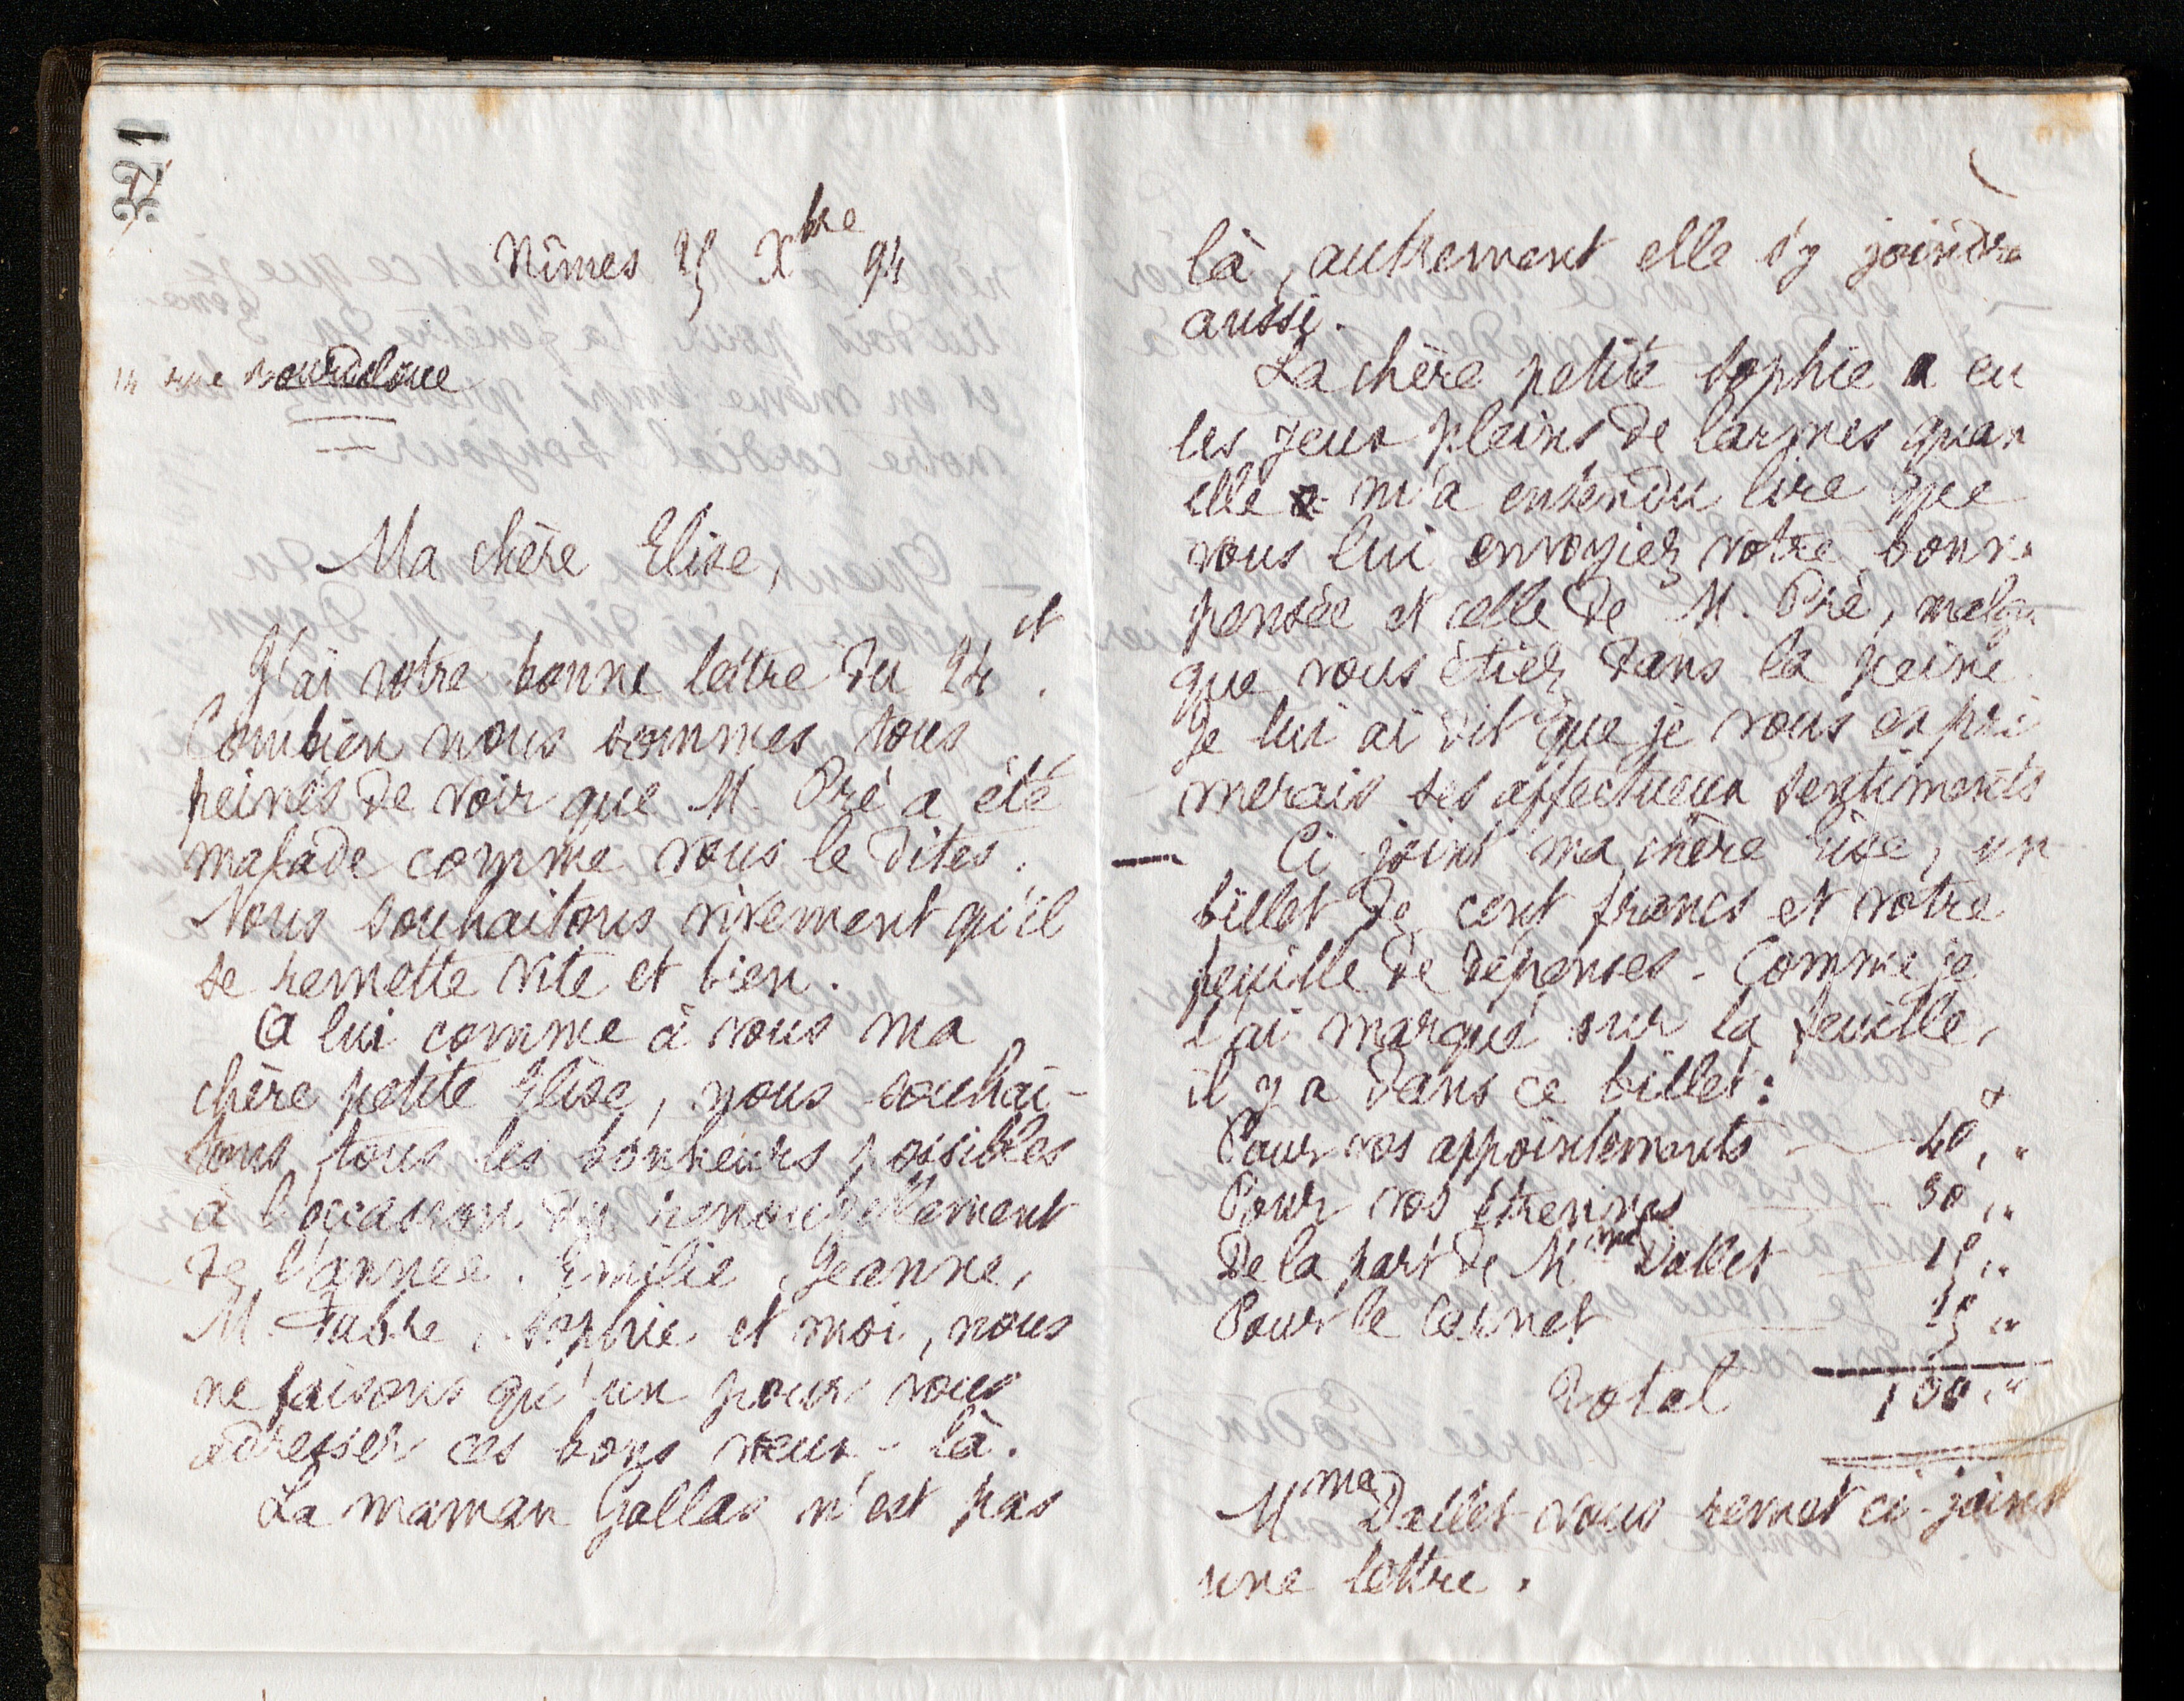 321
Nîmes 25 Xbre 94
14 rue Bourdaloue
Ma chère Elise,
J'ai votre bonne lettre du 24 ct.
Combien nous sommes tous
peinés de voir que M. Pré a été
malade comme vous le dites.
Nous souhaitons vivement qu'il
se remette vite et bien.
A lui comme à vous ma
chère petite Elise, nous souhai-
tons tous les bonheurs possibles
à l'occasion du renouvellement
de l'année. Emilie, Jeanne,
M. Fabre, Sophie et moi, nous
ne faisons qu'un pour vous
adresser ces bons vœux-là.
La maman Gallas n'est pas
là, autrement elle s'y joindra
aussi.
La chère petite Sophie a eu
les yeux pleins de larmes quan
elle m'a entendu lire que
vous lui envoyiez votre bonne
pensée et celle de M. Pré, malgr
que vous étiez dans la peine.
Je lui ai dit que je vous expri
merais ses affectueux sentiments
— Ci-joint ma chère Elise, un
billet de cent francs et votre
feuille de dépenses - Comme je
l'ai marqué sur la feuille,
il y a dans ce billet :
Pour vos appointements - 40, "
Pour vos étrennes - 30, "
De la part de Mme Dallet - 15, "
Pour le carnet 15, "
Total 100, "
Mme Dallet vous remet ci-joint
une lettre.